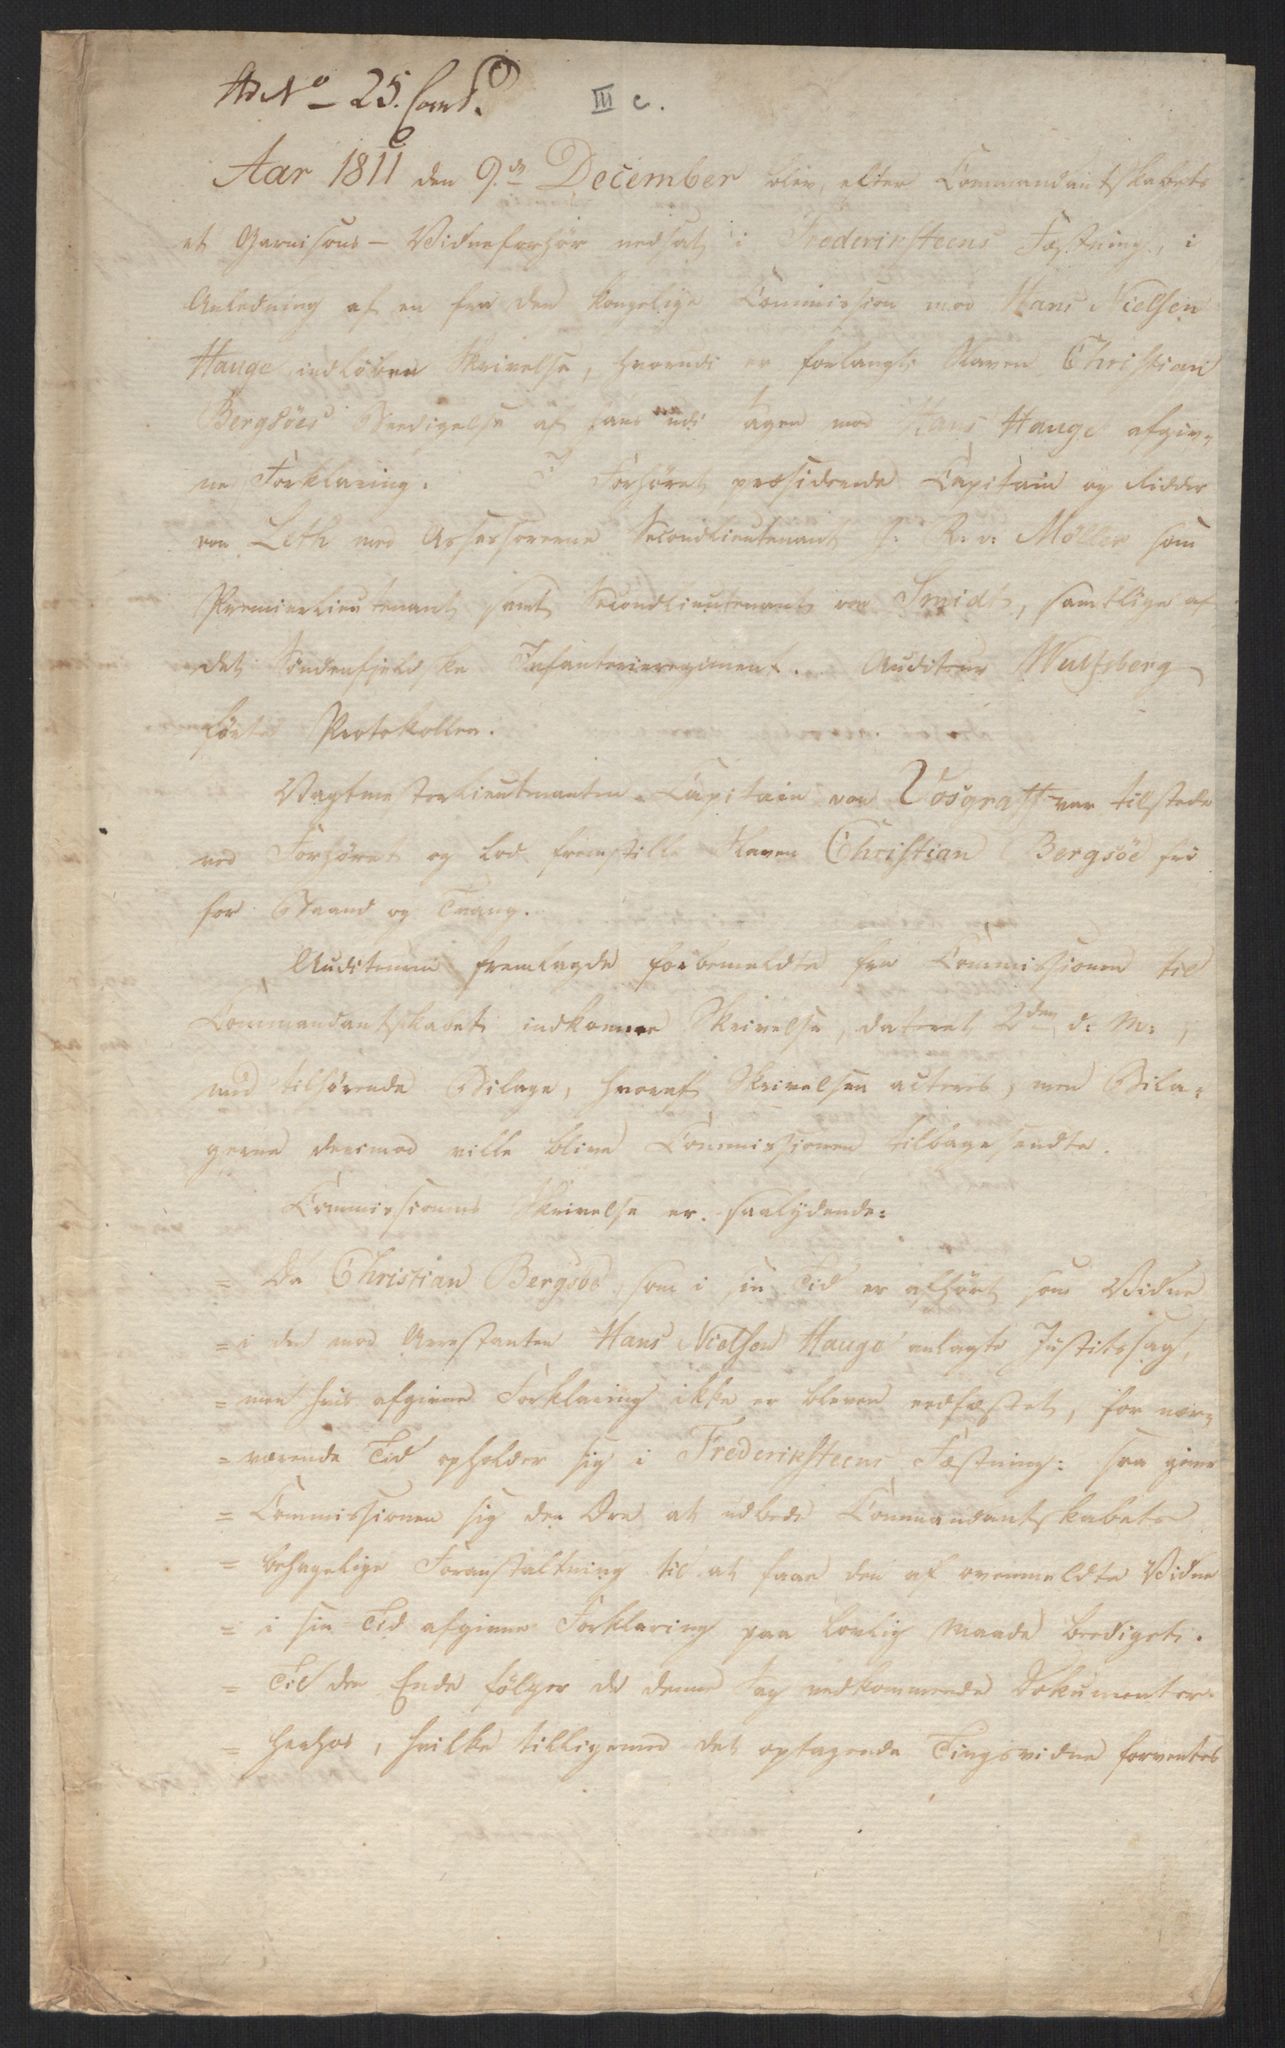 Ad No 25. Cont.
III c.
Aar 1811 den 9de December blev, efter Commandantskabets
et Garnisons-Vidneforhør nedsat i Frederikssteens Fæstning, i
Anledning af en fra den kongelige Commission mod Hans Nielsen
Hauge indløben Skrivelse, hvorudi er forlangt Slaven Christian
Bergsöes Beedigelse af hans udi Sagen mod Hans Hauge afgiv-
ne Forklaring. I Forhöret præsiderede Capitain og Ridder
von Leth med Assessorerne Secondlieutenant J. R. v: Møller som
Premierlieutenant samt Secondlieutenant von Smidt, samtlige af
det Söndenfjeldske Infanterieregiment. Auditeur Wulfsberg
førte Protokollen.
Vagtmesterlieutenanten Capitain von Vosgraff var tilstede
ved Forhöret og lod fremstille Slaven Christian Bergsöe fri
for Baand og Tvang.
Auditeuren fremlagde forbemeldte fra Commissionen til
Commandantskabet indkomne Skrivelse, dateret 2den d: M:,
med tilhörende Bilage, hvoraf Skrivelsen acteres, men Bila-
gerne derimod ville blive Commissionen tilbagesendte.
Commissionens Skrivelse er saalydende:
= Da Christian Bergsöe som i sin Tid er afhört som Vidne
= i den mod Arrestanten Hans Nielsen Hauge anlagte Justitssag,
= men hvis afgivne Forklaring ikke er bleven eedfæstet, for nær-
= værende Tid opholder sig i Frederikssteens Fæstning: saa giver
= Commissionen sig den Ære at udbede Commandantskabets
= behagelige Foranstaltning til at faae den af ovenmeldte Vidne
= i sin Tid afgivne Forklaring paa lovlig Maade beediget.
= Til den Ende fölger de denne Sag vedkommende Dokumenter
= herhos, hvilke tilligemed det optagende Tingsvidne forventes